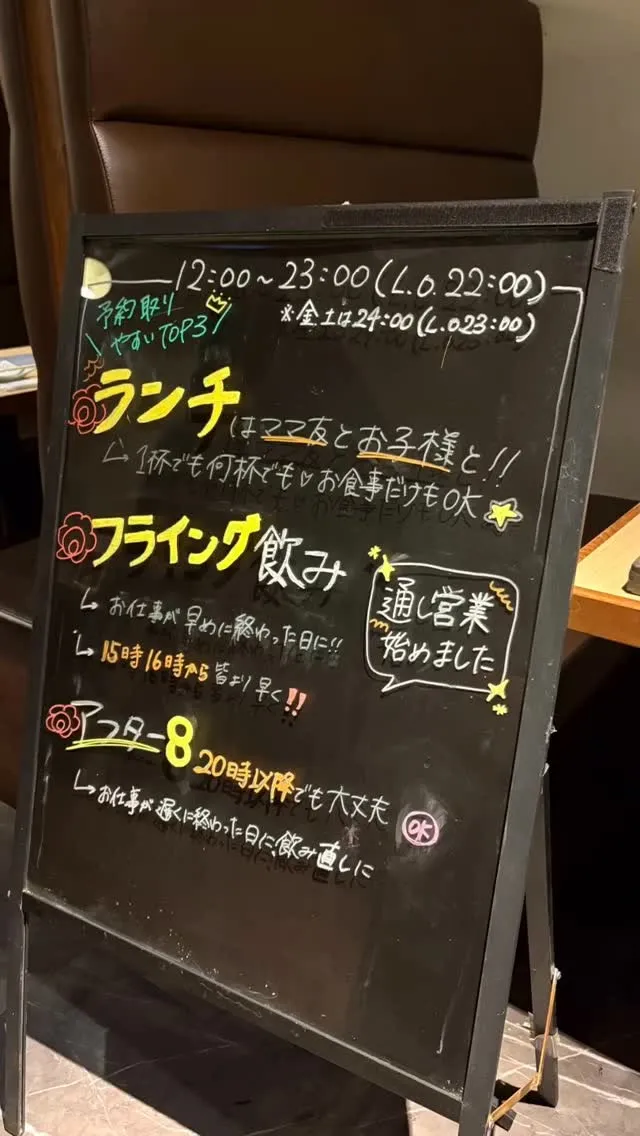 12:00~23:00(L.O.22:00)
※金土は24:00(L.O23:00)
予約取り
やすいTOP3
ランチはママ友とお子様と!!
↳1杯でも何杯でも♡お食事だけもOK
フライング飲み
↳お仕事が早めに終わった日に!!
↳15時16時から皆より早く!!
通し営業
始めました
アフター8 20時以降でも大丈夫
OK
↳お仕事が遅くに終わった日に、飲み直しに